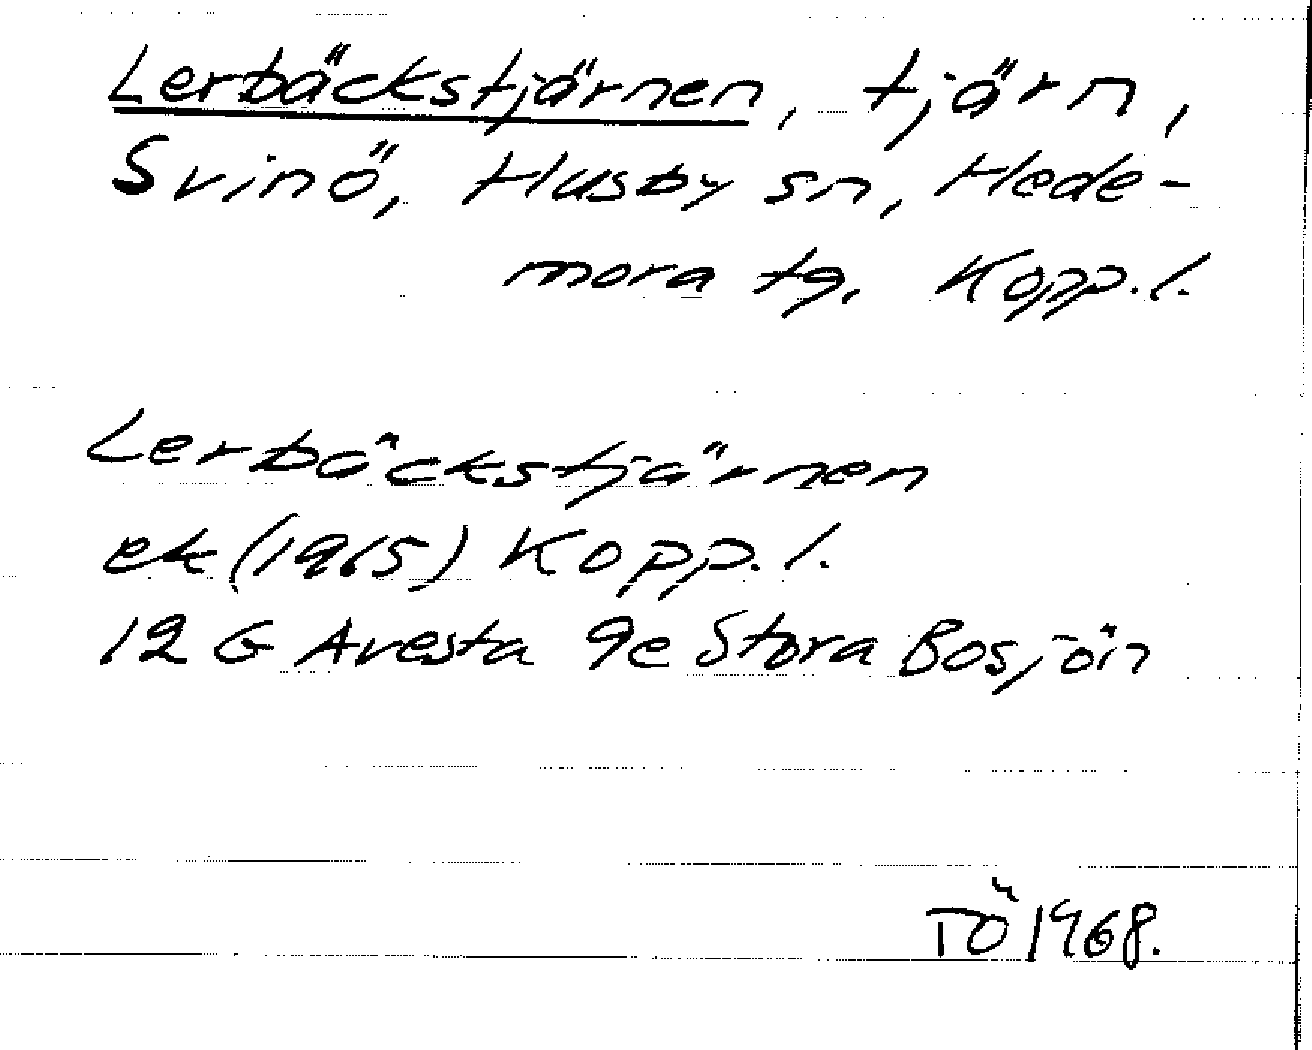 Lerbäckstjärnen, tjärn,
Svinö, Husby sn, Hede-
mora tg. Kopp. l.
Lerbäckstjärnen
ek (1965) Kopp. l.
12 G Avesta 9e Stora Bosjön
TÖ 1968.